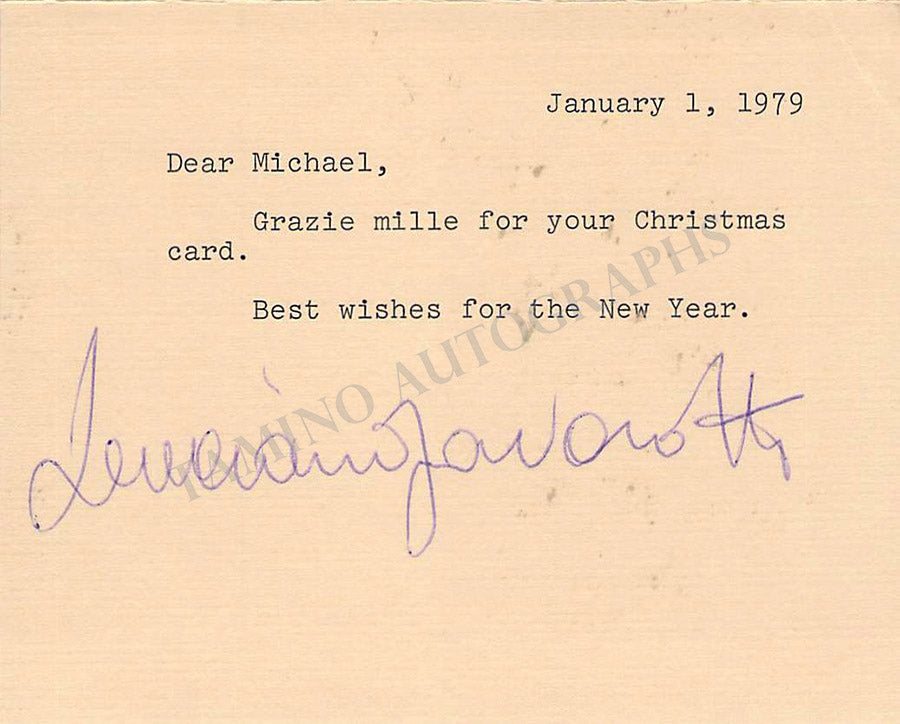 January 1, 1979
Dear Michael,
Grazie mille for your Christmas
card.
Best wishes for the New Year.
Luciano Pavarotti
TAMINO AUTOGRAPHS